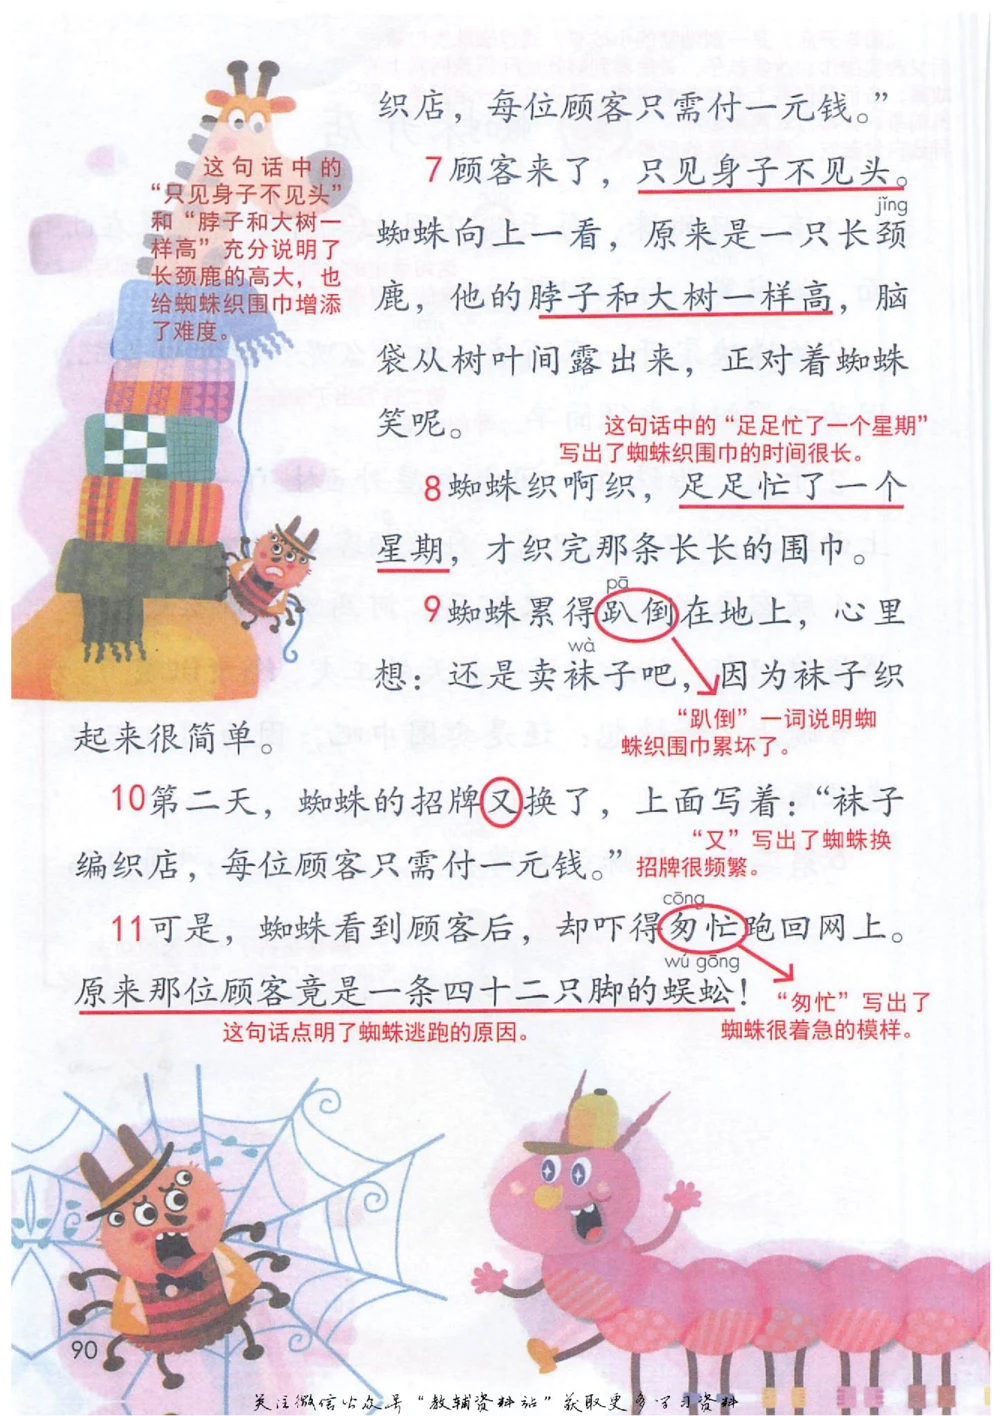 织店，每位顾客只需付一元钱。”
7顾客来了，只见身子不见头。
jǐng
蜘蛛向上一看，原来是一只长颈
鹿，他的脖子和大树一样高，脑
袋从树叶间露出来，正对着蜘蛛
笑呢。
这句话中的
“只见身子不见头”
和“脖子和大树一
样高”充分说明了
长颈鹿的高大，也
给蜘蛛织围巾增添
了难度。
这句话中的“足足忙了一个星期”
写出了蜘蛛织围巾的时间很长。
8蜘蛛织啊织，足足忙了一个
星期，才织完那条长长的围巾。
pā
9蜘蛛累得趴倒在地上，心里
wà
想：还是卖袜子吧，因为袜子织
“趴倒”一词说明蜘
蛛织围巾累坏了。
起来很简单。
10第二天，蜘蛛的招牌又换了，上面写着：“袜子
“又”写出了蜘蛛换
招牌很频繁。
编织店，每位顾客只需付一元钱。”
cōng
11可是，蜘蛛看到顾客后，却吓得匆忙跑回网上。
wú gōng
原来那位顾客竟是一条四十二只脚的蜈蚣！
“匆忙”写出了
蜘蛛很着急的模样。
这句话点明了蜘蛛逃跑的原因。
90
关注微信公众号“教辅资料站”获取更多学习资料